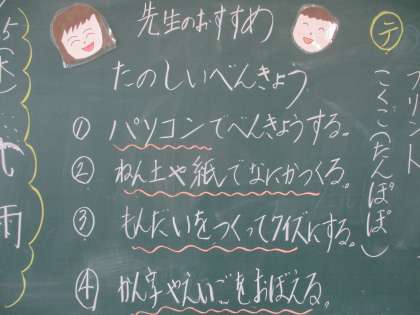 先生のおすすめ
たのしいべんきょう
① パソコンでべんきょうする。
② ねん土や紙でなにかつくる。
③ もんだいをつくってクイズにする。
④ かん字やえいごをおぼえる。
テ
プリント
こくご(たんぽぽ)
5
(木)
雨